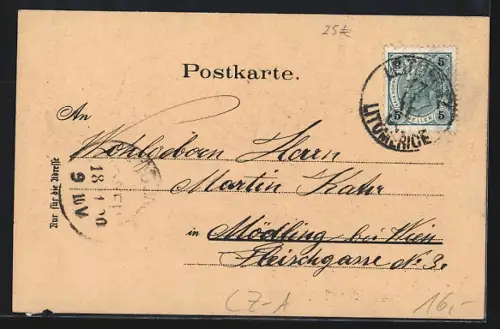 25€
Postkarte.
5 5
LITOMĚŘICE
An
Wohlgeboren Herrn
Martin Kahr
in Mödling bei Wien
Fleischgasse N. 3.
Nur für die Adresse
18 1 00
9 V
CZ-A
16,-